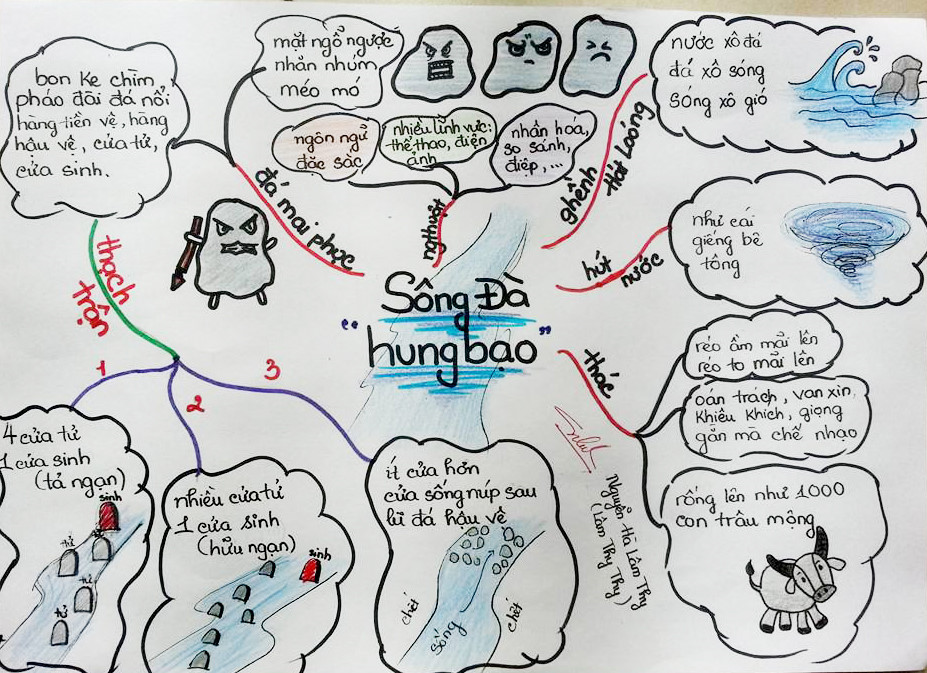 Sông Đà
"hung bạo"
đá mai phục
mặt ngổ ngược
nhăn nhúm
méo mó
bon ke chìm,
pháo đài đá nổi
hàng tiền vệ, hàng
hậu vệ, cửa tử,
cửa sinh.
thạch
trận
1
4 cửa tử
1 cửa sinh
(tả ngạn)
sinh
tử
tử
tử
2
nhiều cửa tử
1 cửa sinh
(hữu ngạn)
sinh
3
ít cửa hơn
cửa sống núp sau
lũ đá hậu vệ
chết
sống
chết
ng thuật
ngôn ngữ
đặc sắc
nhiều lĩnh vực:
thể thao, điện
ảnh
nhân hóa,
so sánh,
điệp, ...
ghềnh
Hát Loóng
nước xô đá
đá xô sóng
sóng xô gió
hút
nước
như cái
giếng bê
tông
thác
réo ầm mãi lên
réo to mãi lên
oán trách, van xin,
khiêu khích, giọng
gằn mà chế nhạo
rống lên như 1000
con trâu mộng
Nguyễn Hà Lâm Thy
(Lâm Thy Thy)